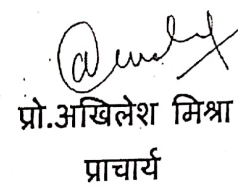 प्रो.अखिलेश मिश्रा
प्राचार्य